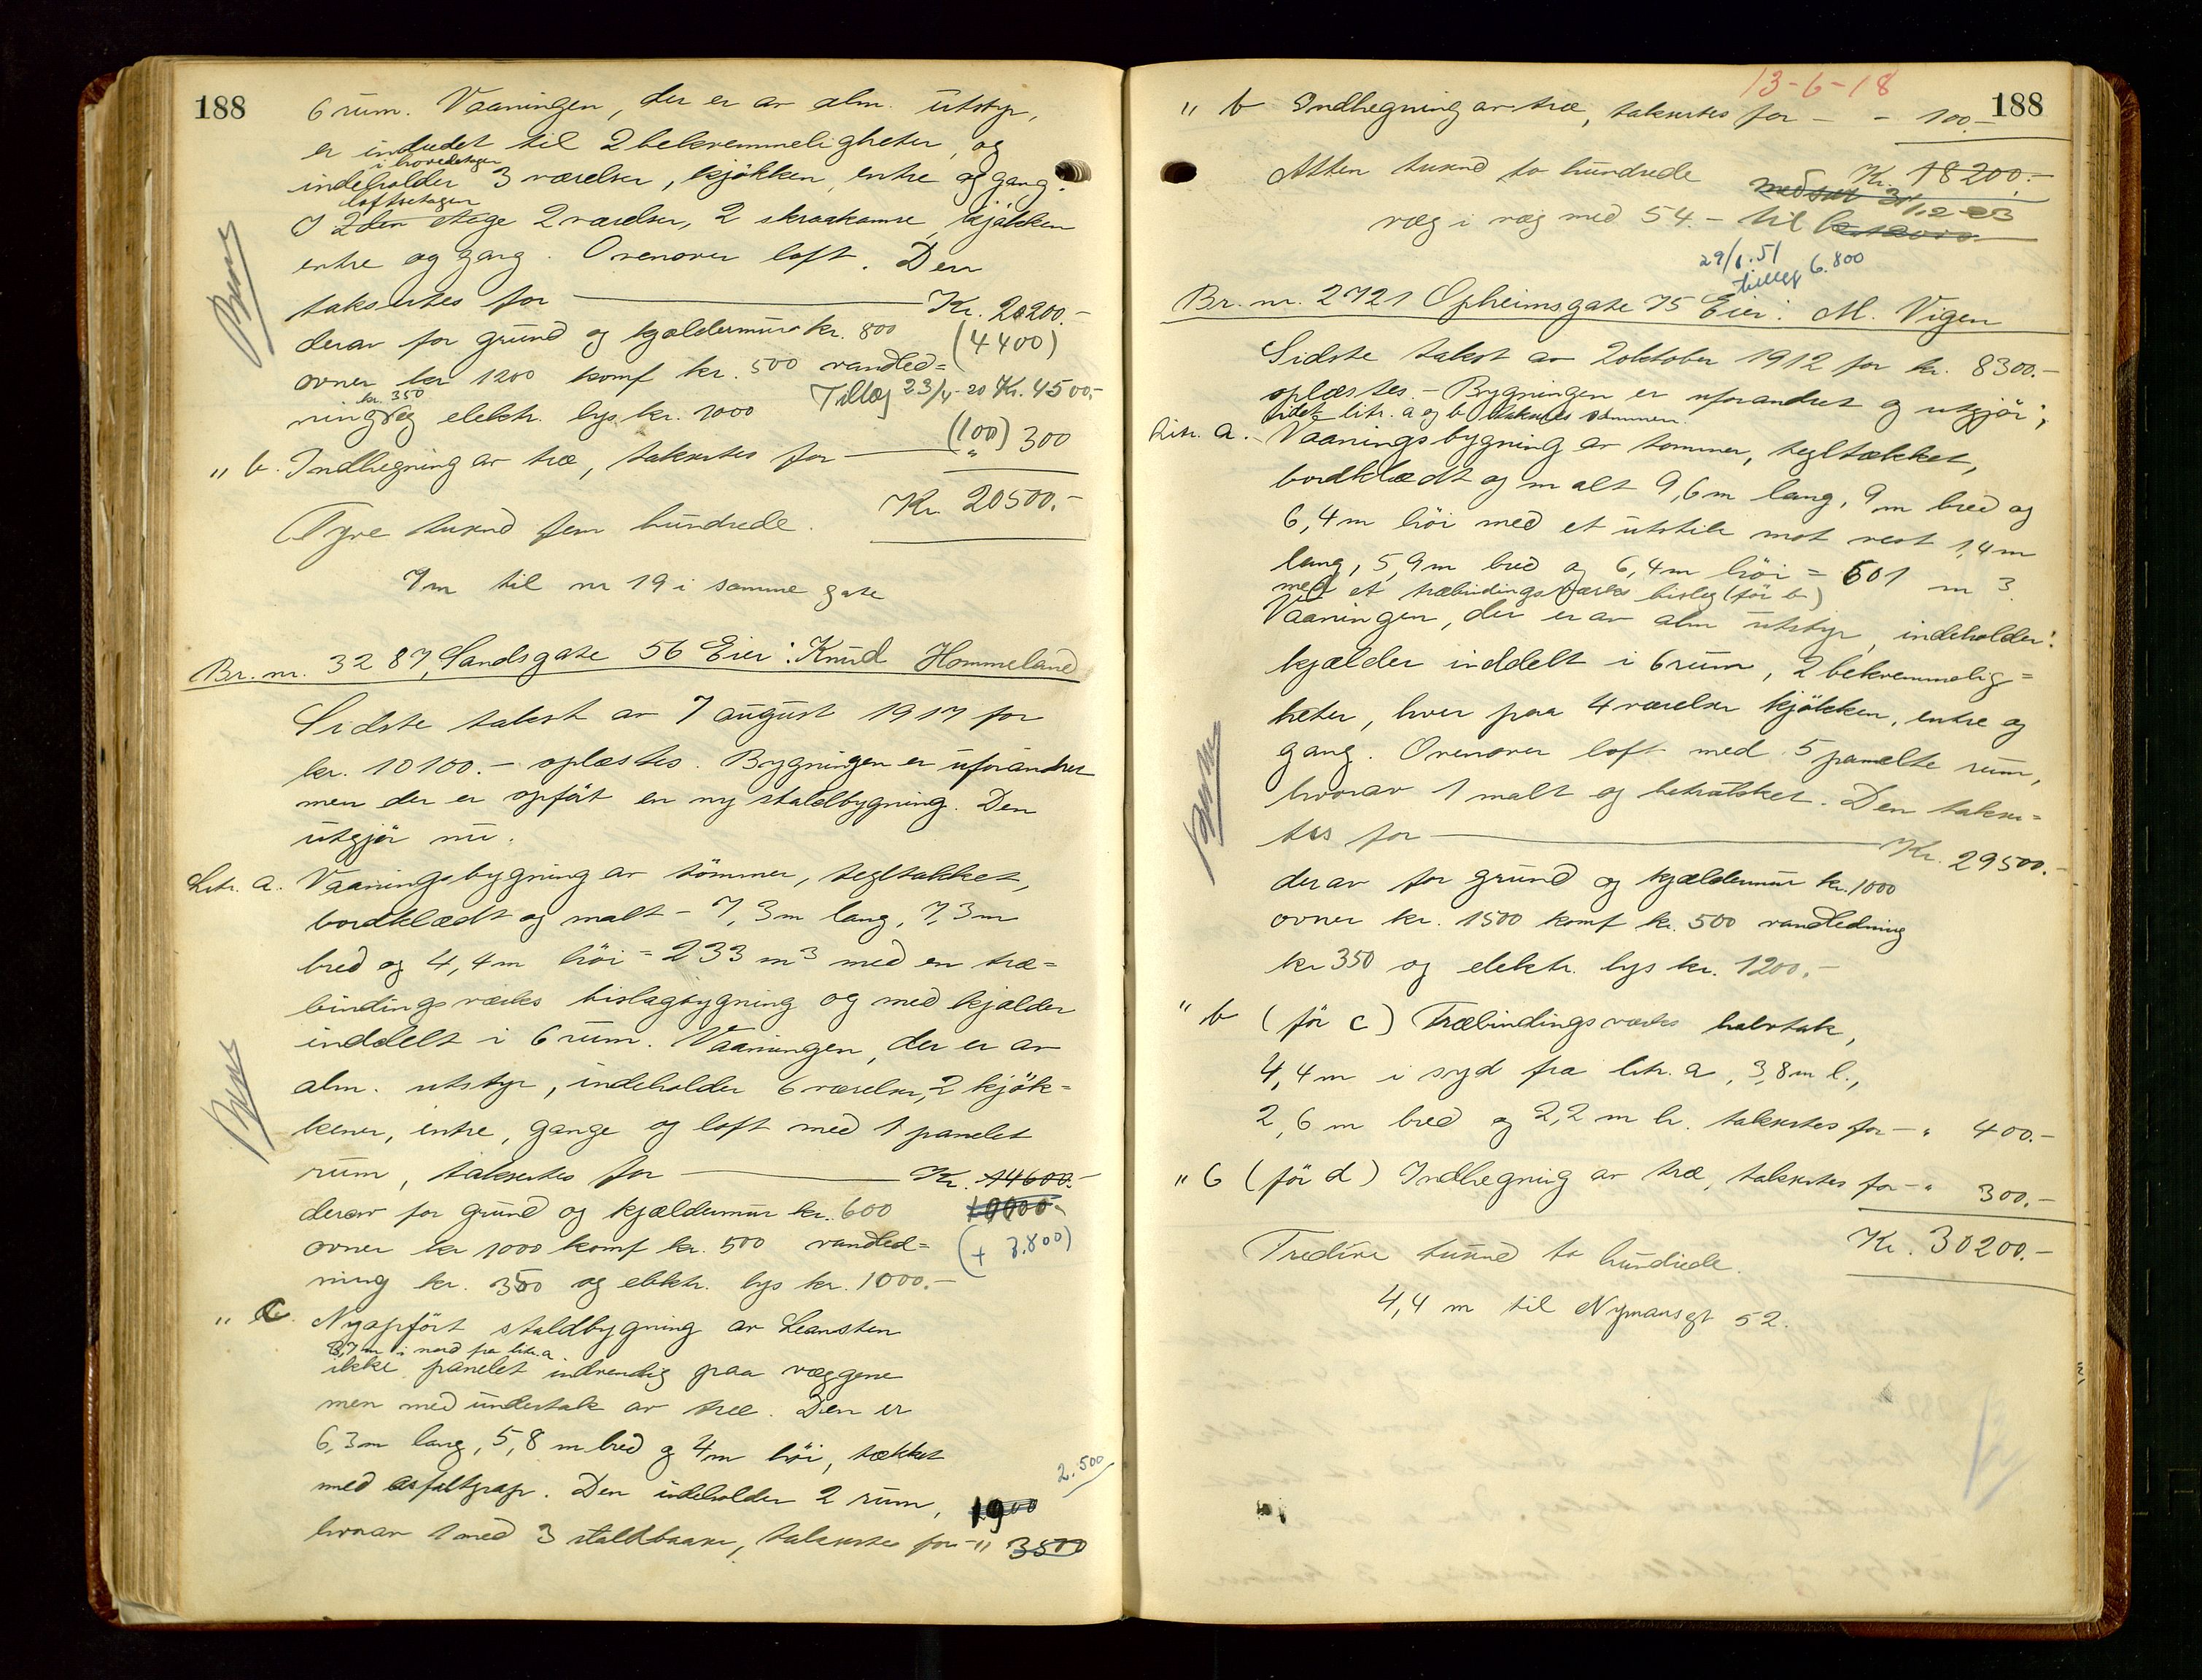 188
6 rum. Vaaningen, der er av alm. utstyr,
er indredet til 2 bekvemmeligheter, og
i hovedetagen
indeholder 3 værelser, kjökken, entre og gang.
loftsetagen
I 2den etage 2 værelser, 2 skraakamre, kjökken
entre og gang. Ovenover loft. Den
taksertes for Kr. 20200.-
derav for grund og kjældermur kr. 800 (4400)
ovner kr 1200 komf kr. 500 vandled=
kr. 350
ning og elektr. lys kr. 1000 Tillæg 23/4-20 Kr. 4500.-
(100)
" b. Indhegning av træ, taksertes for " 300
Kr. 20500.-
Tyve tusend fem hundrede.
9m til nr 19 i samme gate
Br. nr. 3287, Sandsgate 56 Eier: Knud Hommeland
Sidste takst av 7 august 1917 for
kr. 10100.- oplæstes. Bygningen er uforandret
men der er opfört en ny staldbygning. Den
utgjör nu:
Litr. a. Vaaningsbygning av tömmer, tegltækket,
bordklædt og malt - 7,3m lang, 7,3m
bred og 4,4m höi = 233 m3 med en træ=
bindingsværks bislagbygning og med kjælder
inddelt i 6 rum. Vaaningen, der er av
alm. utstyr, indeholder 6 værelser, 2 kjök=
kener, entre, gange og loft med 1 panelet
rum, taksertes for Kr. 14600.-
derav for grund og kjældermur kr. 600 10000.-
ovner kr 1000 komf kr. 500 vandled= (+ 3.800)
ning kr. 350 og elektr. lys kr. 1000.-
" C. Nyopfört staldbygning av Leansten
3,7m i nord fra litr. a
ikke panelet indvendig paa væggene
men med undertak av træ. Den er
6,3m lang, 5,8 m bred og 4m höi, tækket
2.500
med asfaltpap. Den indeholder 2 rum, 1900
hvorav 1 med 3 staldbaase, taksertes for -" 3500
13-6-18
188
" b Indhegning av træ, taksertes for - - 100.-
Atten tusend to hundrede Kr. 18200.-
nedsat 31/12-23
væg i væg med 54. - til
29/1.51
tillegg 6.800
Br. nr. 2721 Opheimsgate 75 Eier: M. Vigen
Sidste takst av 2 oktober 1912 for kr. 8300.-
oplæstes. - Bygningen er uforandret og utgjör;
idet litr. a og b takseres sammen.
Litr. a. - Vaaningsbygning av tømmer, tegltækket,
bordklædt og malt 9,6m lang, 9m bred og
6,4m höi med et utstik mot vest 1,4m
lang, 5,9m bred og 6,4m höi = 601 m 3.
med et træbindingsværks bislag (för b)
Vaaningen, der er av alm utstyr, indeholder:
kjælder inddelt i 6 rum, 2 bekvemmelig=
heter, hver paa 4 værelser kjökken, entre og
gang. Ovenover loft med 5 panelte rum,
hvorav 1 malt og betrukket. Den takser=
tes for Kr. 29500.-
derav for grund og kjældermur kr. 1000
ovner kr. 1500 komf kr. 500 vandledning
kr 350 og elektr. lys kr. 1200.-
" b (för c) Træbindingsværks halvtak,
4,4m i syd fra litr. a, 3,8m l.,
2,6 m bred og 2,2 m h. taksertes for - " 400.-
" C (för d) Indhegning av træ, taksertes for - " 300.-
Kr. 30200.-
Tredive tusend to hundrede.
4,4 m til Nymansgt 52.